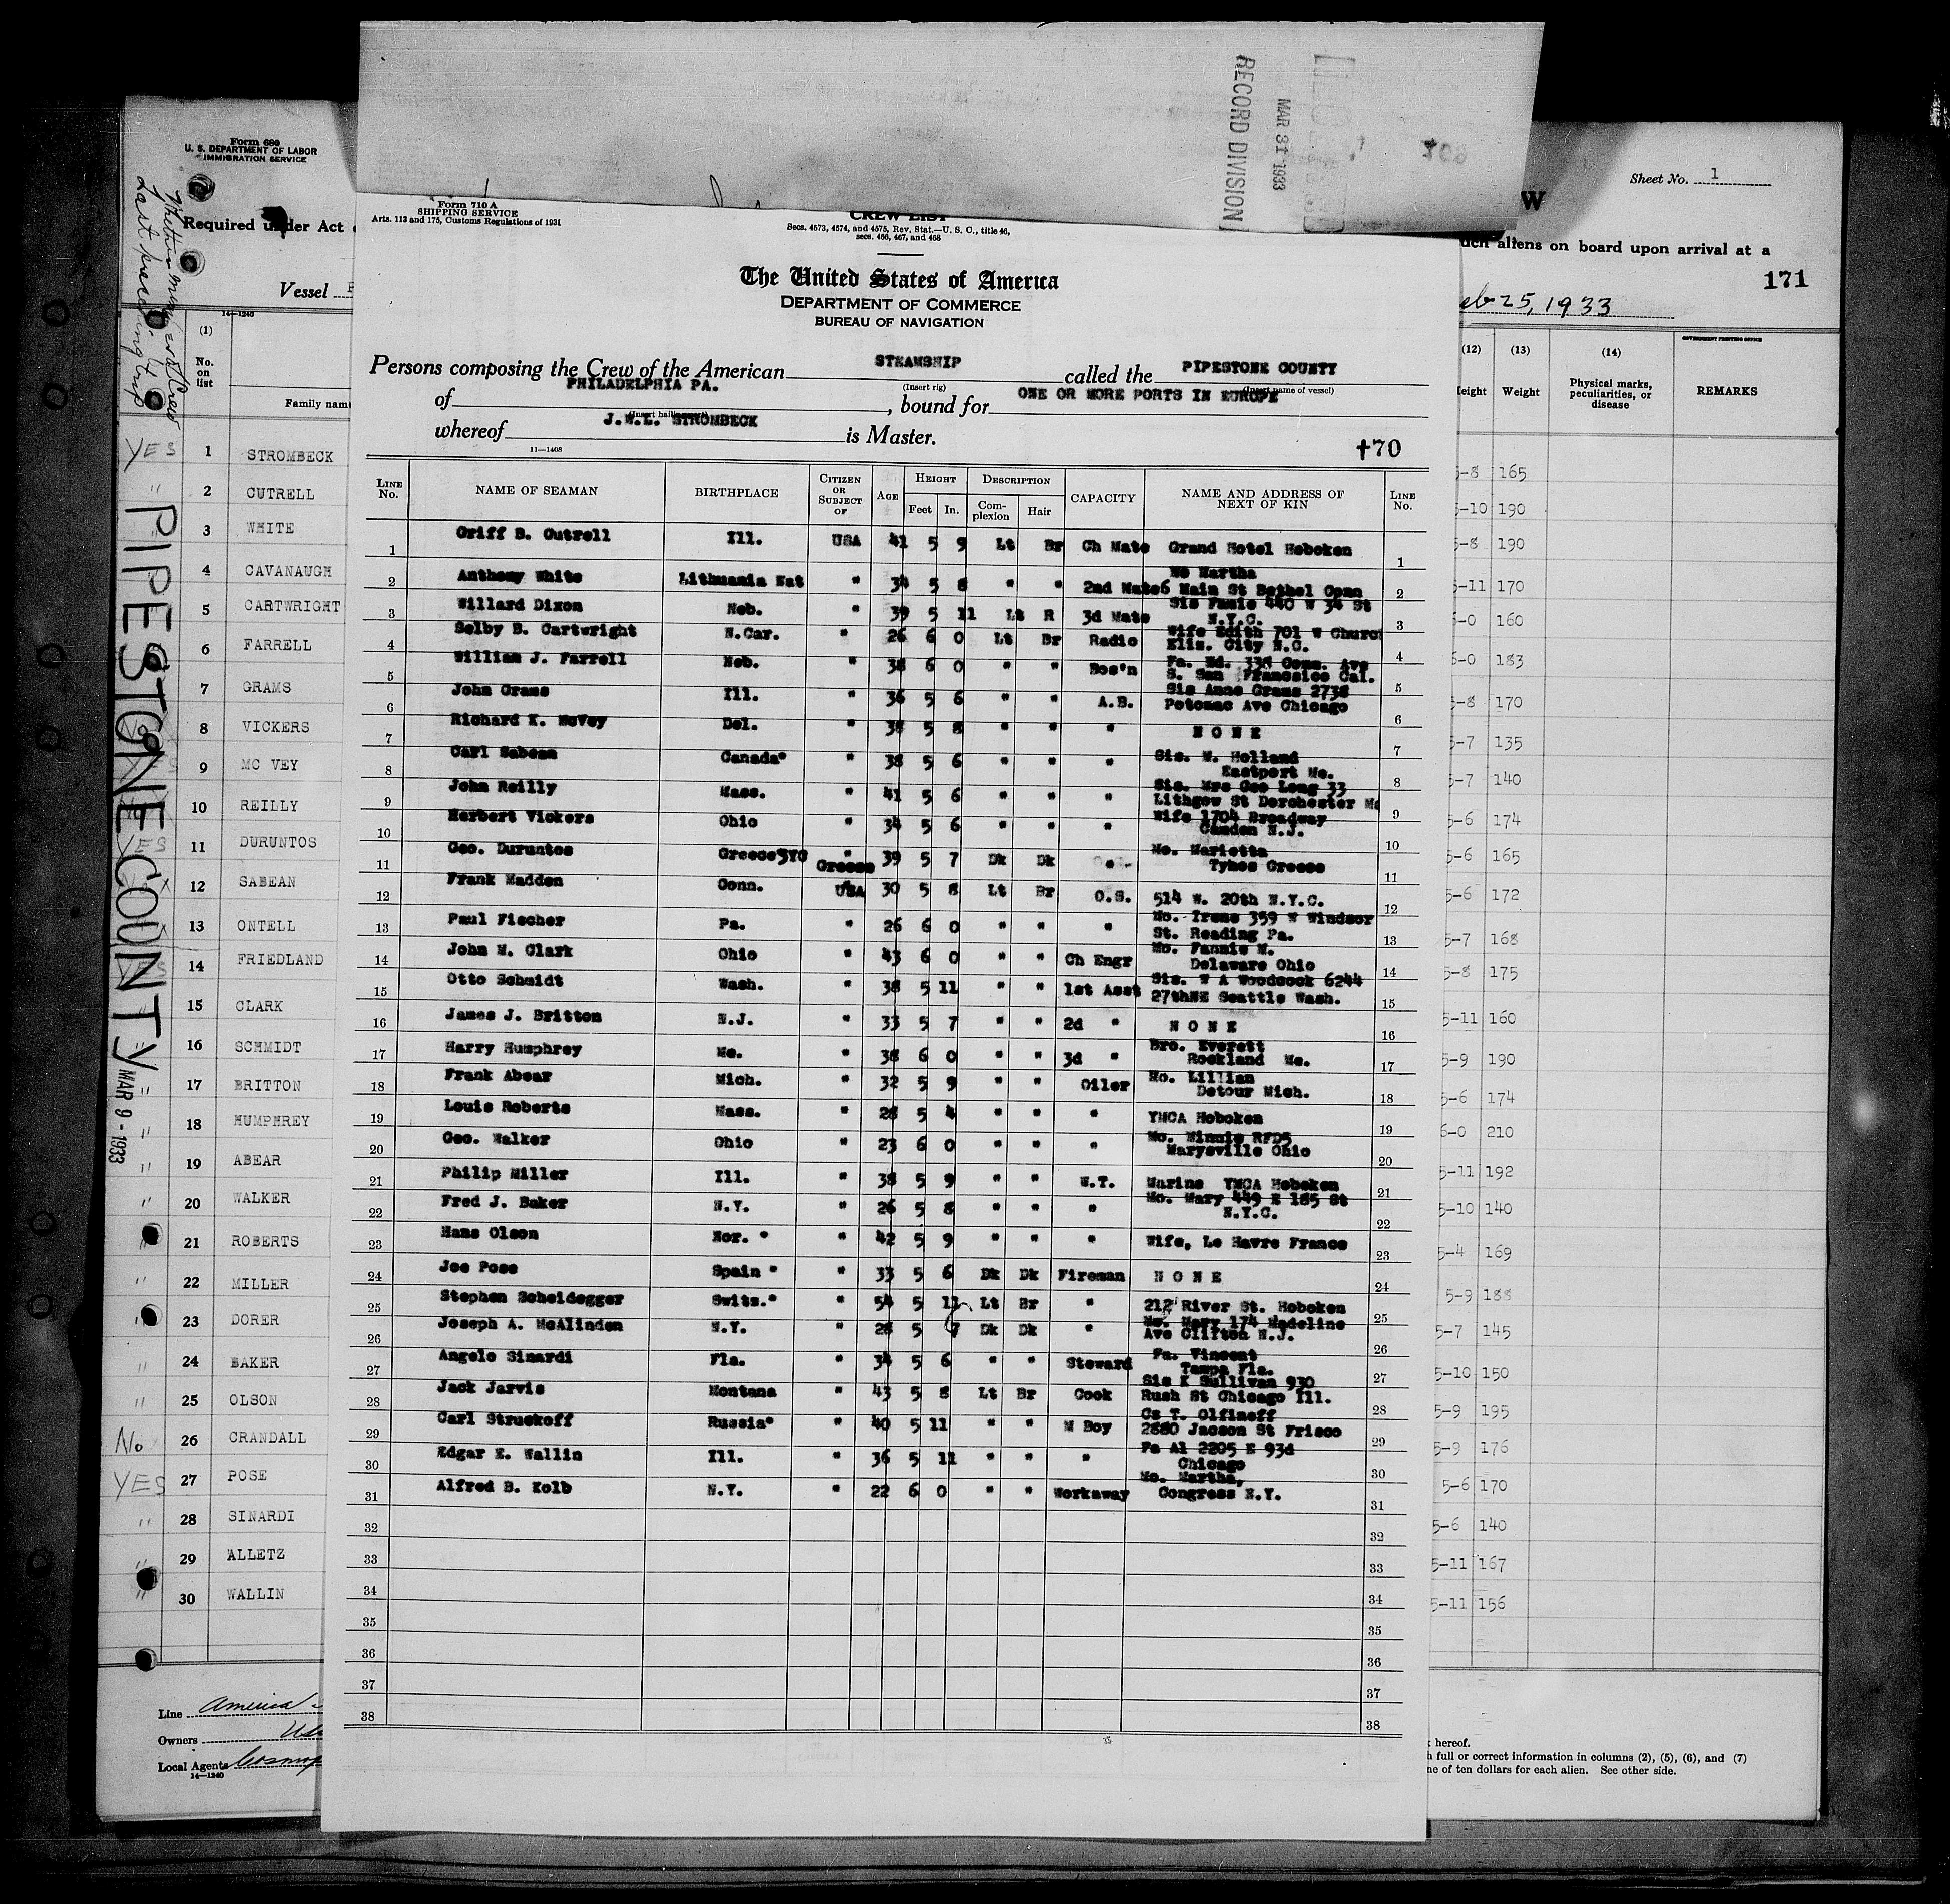 RECORD DIVISION
MAR 31 1933
Form 680
U. S. DEPARTMENT OF LABOR
IMMIGRATION SERVICE
Required under Act
Vessel
14—1240
(1)
No. on list
Family nam
YES 1 STROMBECK
" 2 CUTRELL
3 WHITE
4 CAVANAUGH
5 CARTWRIGHT
6 FARRELL
7 GRAMS
8 VICKERS
9 MC VEY
10 REILLY
YES 11 DURUNTOS
12 SABEAN
13 ONTELL
14 FRIEDLAND
15 CLARK
" 16 SCHMIDT
" 17 BRITTON
" 18 HUMPHREY
" 19 ABEAR
" 20 WALKER
" 21 ROBERTS
" 22 MILLER
" 23 DORER
" 24 BAKER
" 25 OLSON
No 26 CRANDALL
YES 27 POSE
" 28 SINARDI
" 29 ALLETZ
" 30 WALLIN
PIPESTONE COUNTY
MAR 9 - 1933
Line America
Owners
Local Agents
14—1240
Form 710 A
SHIPPING SERVICE
Arts. 113 and 175, Customs Regulations of 1931
CREW LIST
Secs. 4573, 4574, and 4575, Rev. Stat.—U. S. C., title 46,
secs. 466, 467, and 468
The United States of America
DEPARTMENT OF COMMERCE
BUREAU OF NAVIGATION
Persons composing the Crew of the American STEAMSHIP called the PIPESTONE COUNTY
(Insert rig) (Insert name of vessel)
of PHILADELPHIA PA. , bound for ONE OR MORE PORTS IN EUROPE
whereof J.W.L. STROMBECK is Master.
11—1408
170
LINE No. NAME OF SEAMAN BIRTHPLACE CITIZEN OR SUBJECT OF AGE HEIGHT Feet In. DESCRIPTION Complexion Hair CAPACITY NAME AND ADDRESS OF NEXT OF KIN LINE No.
1 Griff B. Cutrell Ill. USA 41 5 9 Lt Br Ch Mate Grand Hotel Hoboken 1
2 Anthony White Lithuania Nat " 34 5 8 " " 2nd Mate Mo Martha 6 Main St Bethel Conn 2
3 Willard Dixon Neb. " 39 5 11 Lt R 3d Mate Sis 440 W 34 St N.Y.C. 3
4 Selby B. Cartwright N.Car. " 26 6 0 Lt Br Radio Wife Edith 701 W Church Eliz. City N.C. 4
5 William J. Farrell Neb. " 38 6 0 " " Bos'n Fa. Ed. Ave S. San Francisico Cal. 5
6 John Grams Ill. " 36 5 6 " " A.B. Sis Anne Grams 2738 Potomac Ave Chicago 6
7 Richard K. McVey Del. " 38 5 8 " " " N O N E 7
8 Carl Sabean Canada" " 38 5 6 " " " Sis. M. Holland Eastport Me. 8
9 John Reilly Mass. " 41 5 6 " " " Sis. Mrs Geo Long 33 Lithgow St Dorchester Ma 9
10 Herbert Vickers Ohio " 34 5 6 " " " Wife 1704 Broadway Camden N.J. 10
11 Geo. Duruntos Greece Greece 39 5 7 Dk Dk " Mo. Marietta Tynos Greece 11
12 Frank Madden Conn. USA 30 5 8 Lt Br O.S. 514 W. 20th N.Y.C. 12
13 Paul Fischer Pa. " 26 6 0 " " " Mo. Irene 359 W Windsor St. Reading Pa. 13
14 John M. Clark Ohio " 43 6 0 " " Ch Engr Mo. Fannie M. Delaware Ohio 14
15 Otto Schmidt Wash. " 38 5 11 " " 1st Asst Sis. W A Woodcock 6244 27thNE Seattle Wash. 15
16 James J. Britton N.J. " 33 5 7 " " 2d " N O N E 16
17 Harry Humphrey Me. " 38 6 0 " " 3d " Bro. Everett Rockland Me. 17
18 Frank Abear Mich. " 32 5 9 " " Oiler Mo. Lillian Detour Mich. 18
19 Louis Roberts Mass. " 28 5 4 " " " YMCA Hoboken 19
20 Geo. Walker Ohio " 23 6 0 " " " Mo. Minnie RFD5 Marysville Ohio 20
21 Philip Miller Ill. " 38 5 9 " " W.T. Marine YMCA Hoboken 21
22 Fred J. Baker N.Y. " 26 5 8 " " " Mo. Mary 449 E 185 St N.Y.C. 22
23 Hans Olson Nor. " " 42 5 9 " " " Wife, Le Havre France 23
24 Joe Pose Spain " " 33 5 6 Dk Dk Fireman N O N E 24
25 Stephen Scheidegger Switz." " 54 5 11 Lt Br " 212 River St. Hoboken 25
26 Joseph A. McAlinden N.Y. " 28 5 7 Dk Dk " Mo. Mary 174 Madeline Ave Clifton N.J. 26
27 Angelo Sinardi Fla. " 34 5 6 " " Steward Fa. Vincent Tampa Fla. 27
28 Jack Jarvis Montana " 43 5 8 Lt Br Cook Sis K Sullivan 930 Rush St Chicago Ill. 28
29 Carl Struckoff Russia" " 40 5 11 " " M Boy Cs T. Olfineff 2880 Jacson St Frisco 29
30 Edgar E. Wallin Ill. " 36 5 11 " " " Fa Al 2205 E 93d Chicago 30
31 Alfred B. Kolb N.Y. " 22 6 0 " " Workaway Mo. Martha, Congress N.Y. 31
32 32
33 33
34 34
35 35
36 36
37 37
38 38
Sheet No. 1
W
such aliens on board upon arrival at a
171
eb 25, 1933
GOVERNMENT PRINTING OFFICE
(12) (13) (14)
eight Weight Physical marks, peculiarities, or disease REMARKS
5-8 165
5-10 190
5-8 190
5-11 170
6-0 160
6-0 183
5-8 170
5-7 135
5-7 140
5-6 174
5-6 165
5-6 172
5-7 168
5-8 175
5-11 160
5-9 190
5-6 174
6-0 210
5-11 192
5-10 140
5-4 169
5-9 188
5-7 145
5-10 150
5-9 195
5-9 176
5-6 170
5-6 140
5-11 167
5-11 156
hereof.
h full or correct information in columns (2), (5), (6), and (7)
ne of ten dollars for each alien. See other side.